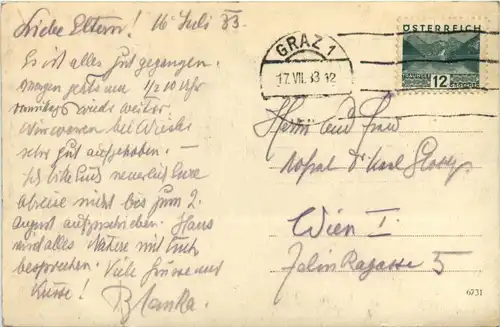 Liebe Eltern! 16. Juli 33.
Es ist alles gut gegangen.
Morgen geht's um 1/2 10 Uhr
vormittags wieder weiter
Wir waren bei
sehr gut aufgehoben. —
Ich bitte Euch Eure
Abreise nicht bis zum 2.
August aufzuschieben. Hans
wird alles Nähere mit Euch
besprechen. Viele Grüsse und
Küsse!
Blanka.
GRAZ 1
17. VII. 33 12
ÖSTERREICH
12
GROSCHEN
Herrn und Frau
Hofrat Dr Karl Glossy
Wien I.
5
6731